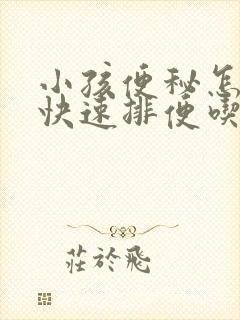 小孩便秘怎
快速排便喫
莊於飛